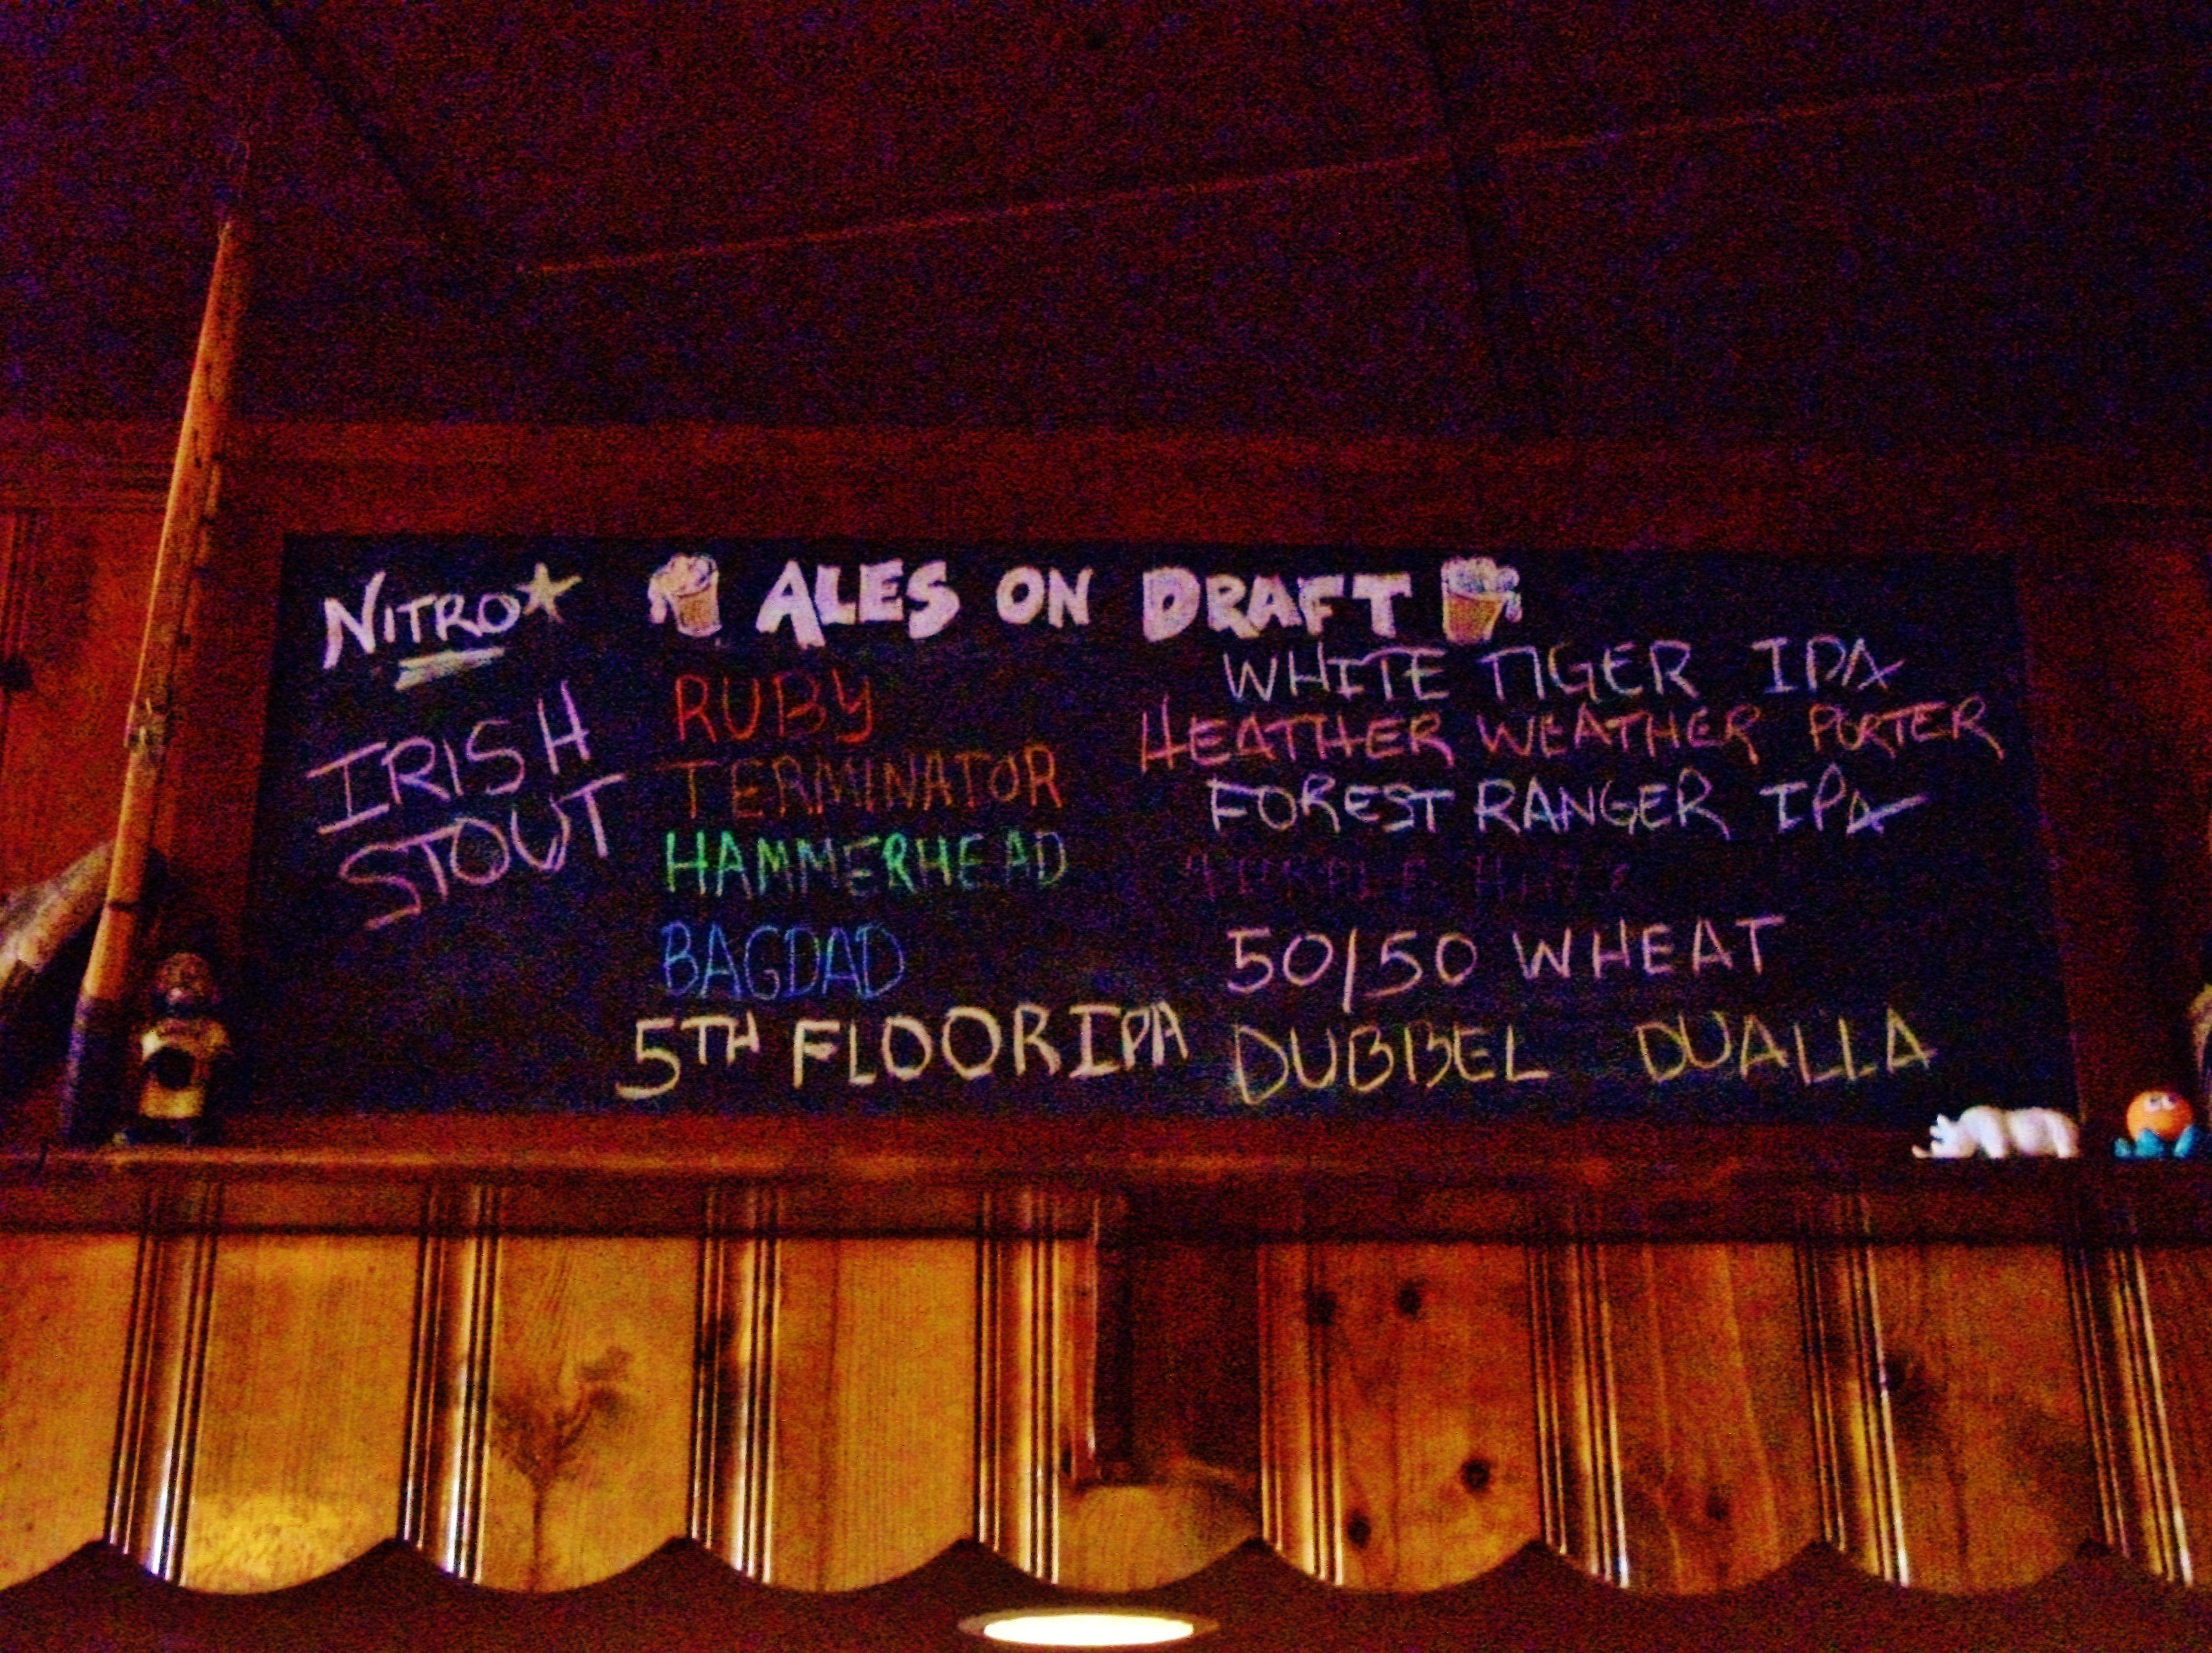 NITRO
IRISH
STOUT
ALES ON DRAFT
RUBY
TERMINATOR
HAMMERHEAD
BAGDAD
5TH FLOOR IPA
WHITE TIGER IPA
HEATHER WEATHER PORTER
FOREST RANGER IPA
50/50 WHEAT
DUBBEL DUALLA